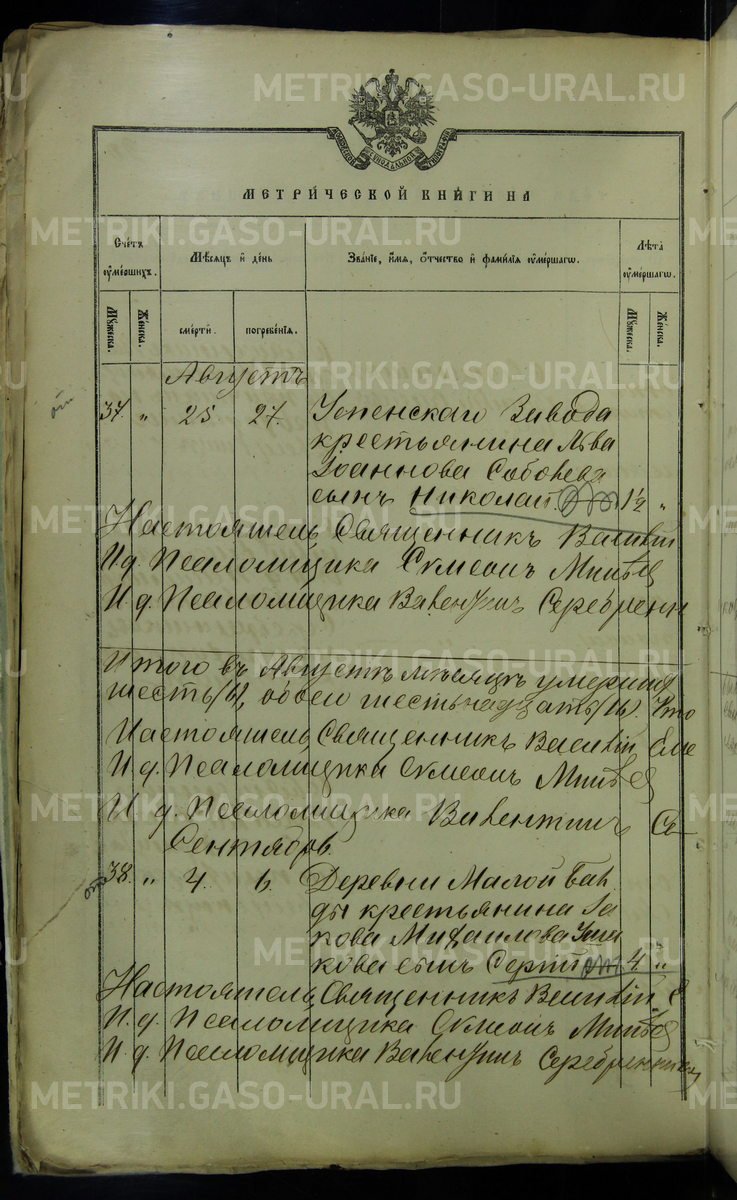 METRIKI.GASO-URAL.RU
МЕТРИ́ЧЕСКОЙ КНИ́ГИ НА
Сче́тъ оу҆ме́ршихъ.
Мѣ́сяцъ и҆ де́нь
Зва́нїе, и҆́мя, ѻ҆́тчество и҆ фами́лїя оу҆ме́ршагѡ.
Лѣ́та оу҆ме́ршагѡ.
Мꙋ́жеска.
Же́нска.
сме́рти.
погребе́нїя.
Мꙋ́жеска.
Же́нска.
Августъ
37. " 25 27. Успенскаго Завода
крестьянина Льва
Іоаннова
сынъ Николай 1½ "
Настоятель Священникъ Василій
И. д. Псаломщика Симеонъ
И. д. Псаломщика Валентинъ Серебренни
Итого въ Августѣ мѣсяцѣ умерших
шесть
Настоятель Священникъ Василій
И. д. Псаломщика Симеонъ
И. д. Псаломщика Валентинъ Се
Сентябрь.
38. " 4. 6. Деревни Малой
крестьянина Іа
кова Михаилова Уша
кова сынъ Сергій 4. "
Настоятель Священникъ Василій
И. д. Псаломщика Симеонъ
И. д. Псаломщика Валентинъ Серебренник